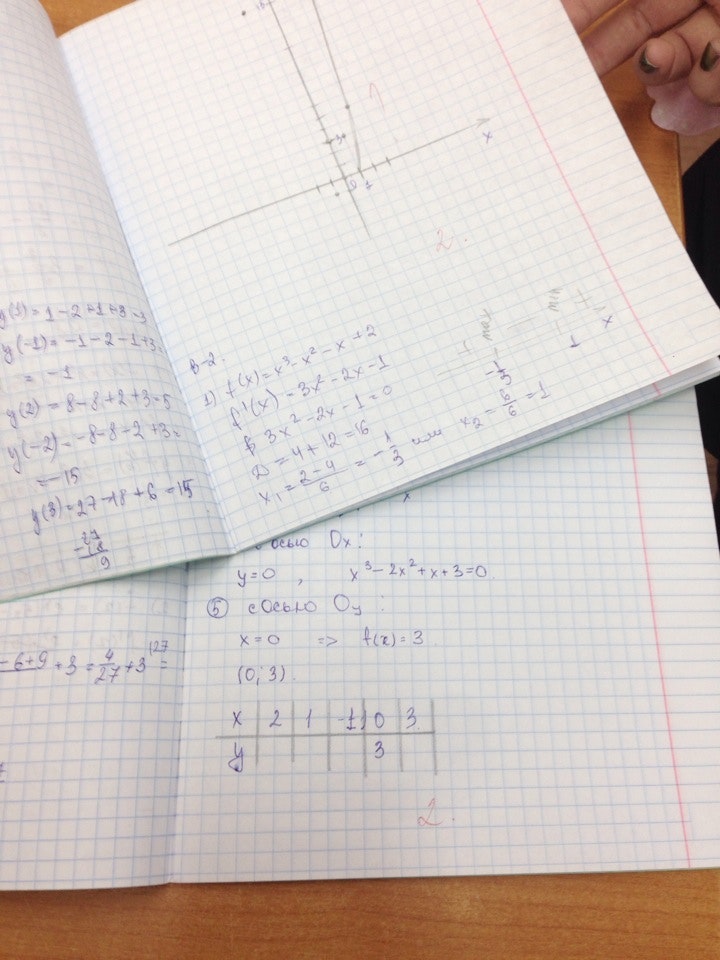 x
0
1
3
2.
y(1)=1-2+1+3=3
y(-1)=-1-2-1+3=
=-1
y(2)=8-8+2+3=5
y(-2)=-8-8-2+3=
=-15
y(3)=27-18+6=15
27
-18
9
В-2.
1) f(x)=x³-x²-x+2
f'(x)=3x²-2x-1
3x²-2x-1=0
D=4+12=16
x₁=2-4/6=-1/3 или x₂=6/6=1
+ max - min +
-1/3 1 x
x
с осью Ox:
y=0, x³-2x²+x+3=0.
⑤ с осью Oy:
x=0 => f(x)=3.
(0; 3).
x 2 1 -1 0 3
y 3
-6+9 +3=4/27+3=
2.